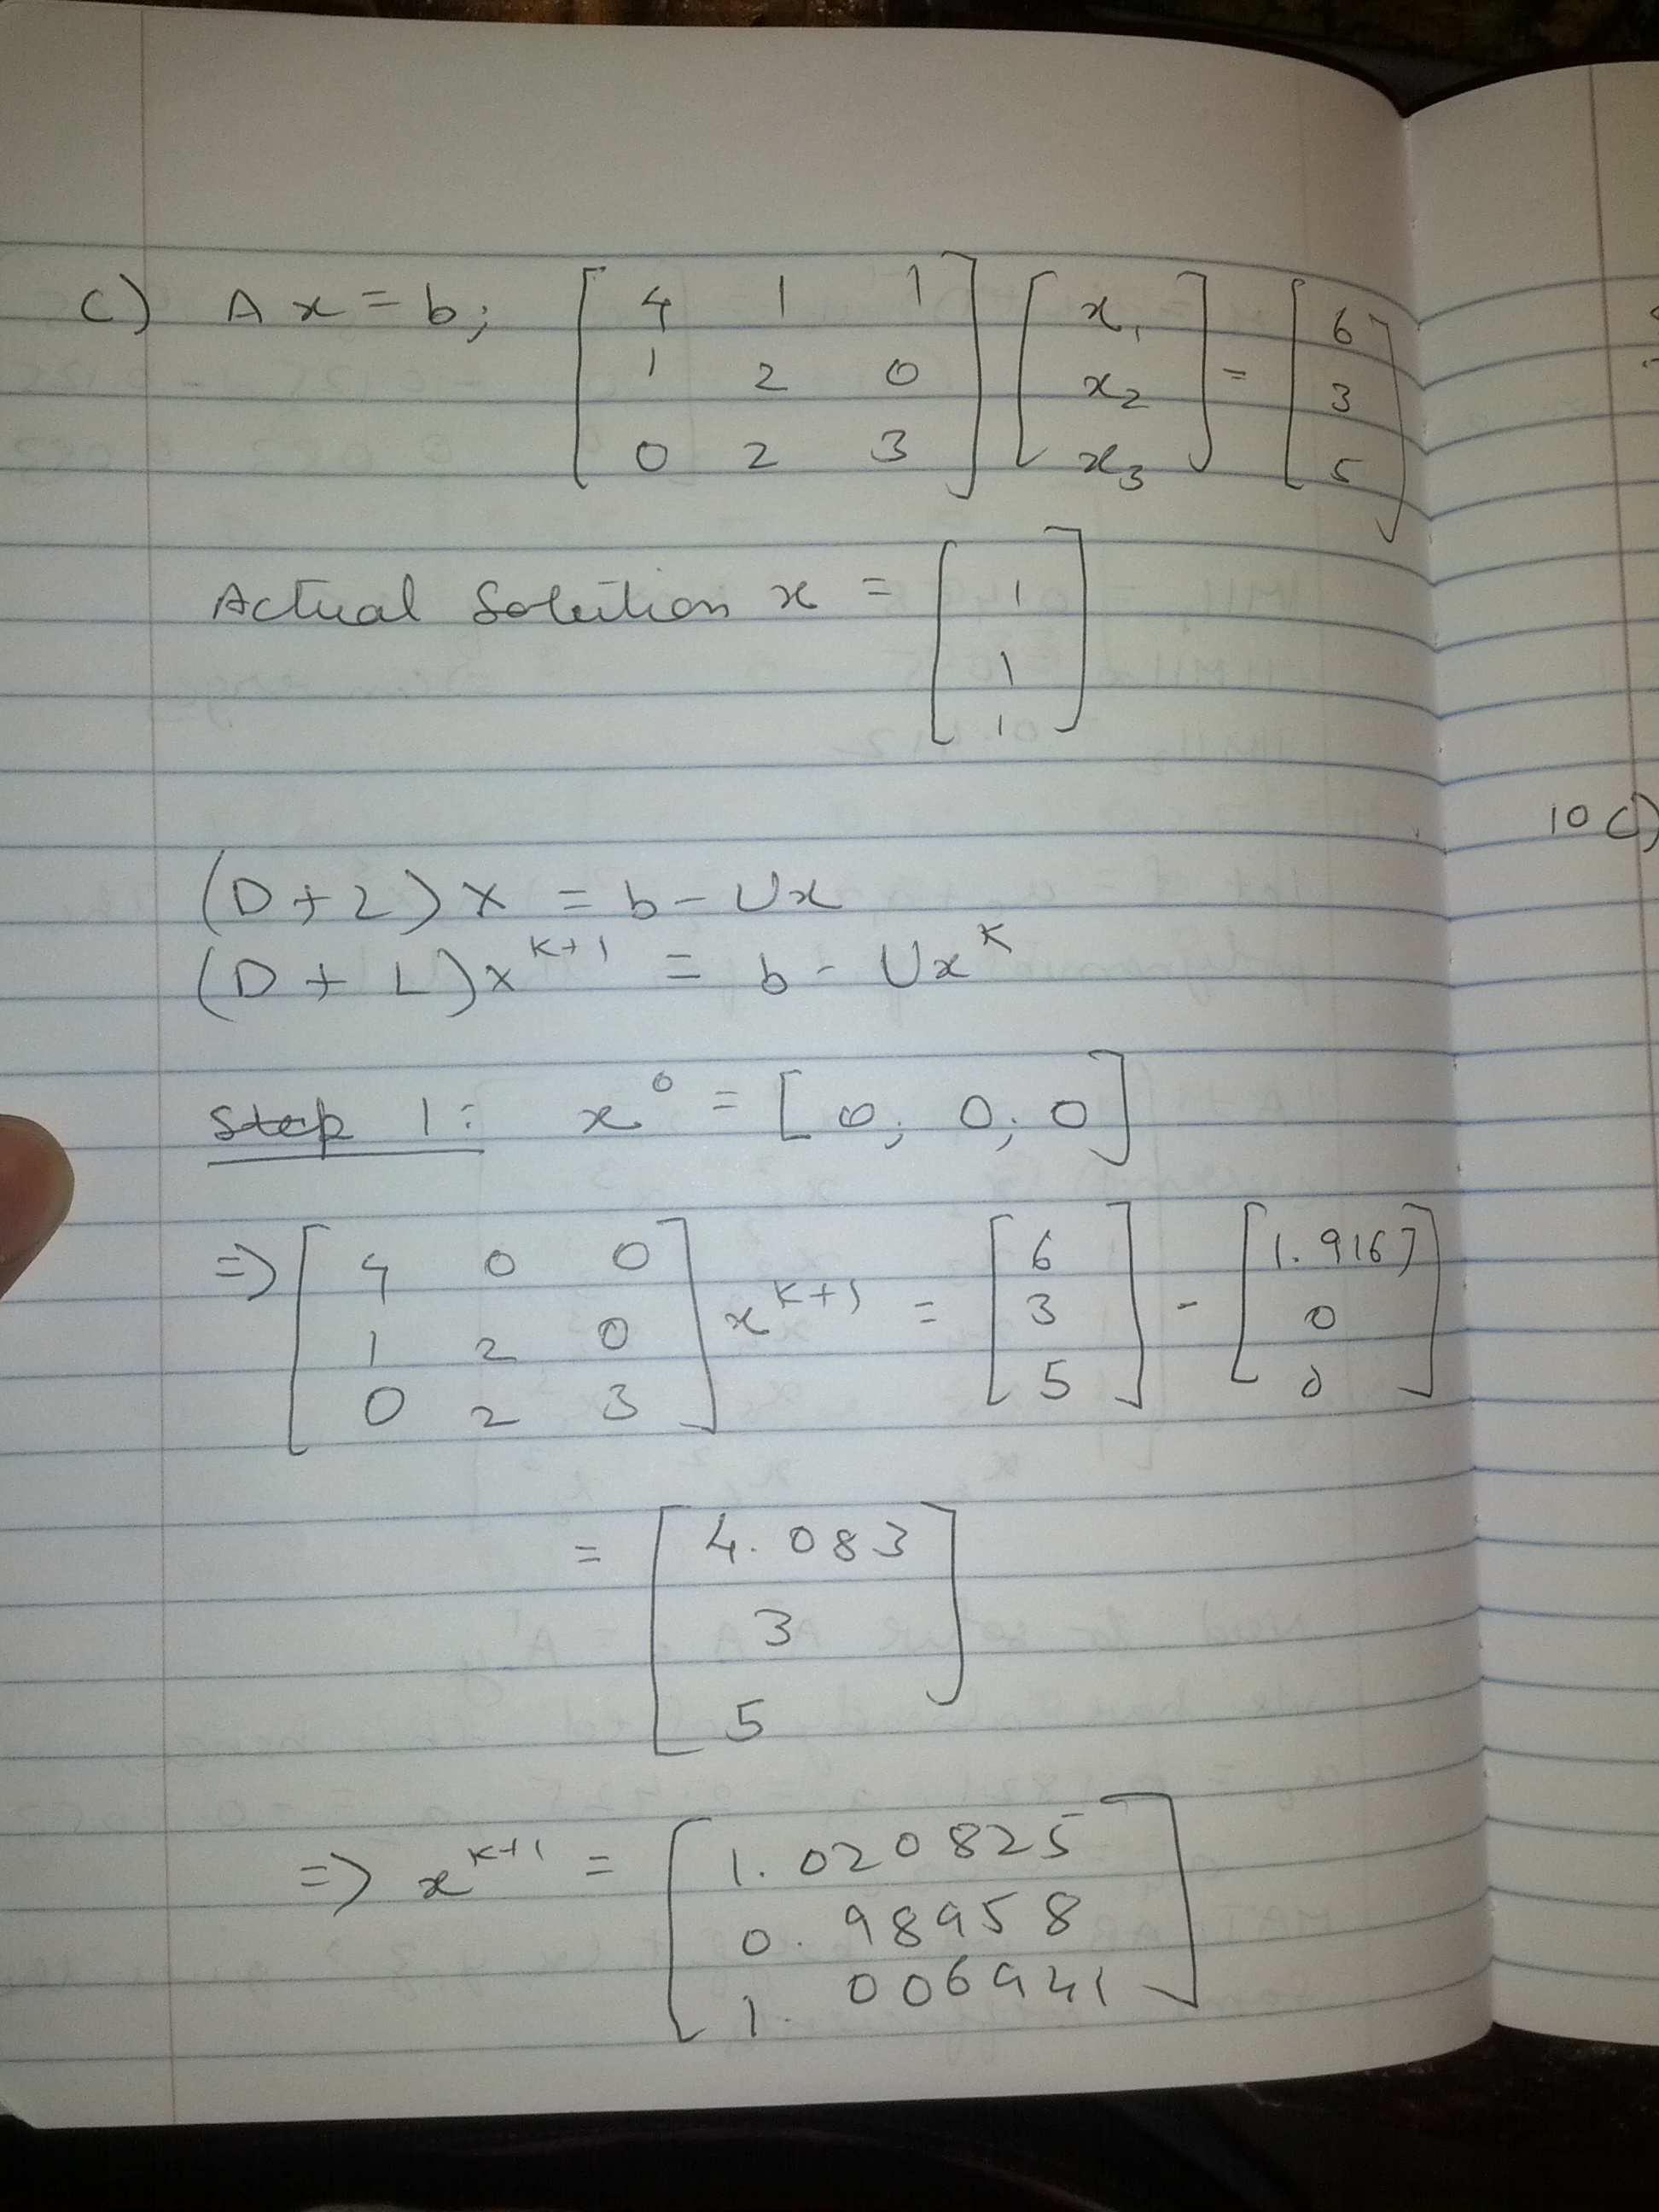 C) Ax = b; [ 4 1 1 ; 1 2 0 ; 0 2 3 ] [ x₁ ; x₂ ; x₃ ] = [ 6 ; 3 ; 5 ]
Actual Solution x = [ 1 ; 1 ; 1 ]
(D + L) x = b - Ux
10 C)
(D + L) x^{k+1} = b - Ux^k
Step 1: x⁰ = [ 0; 0; 0 ]
=> [ 4 0 0 ; 1 2 0 ; 0 2 3 ] x^{k+1} = [ 6 ; 3 ; 5 ] - [ 1.9167 ; 0 ; 0 ]
= [ 4.083 ; 3 ; 5 ]
=> x^{k+1} = [ 1.020825 ; 0.98958 ; 1.006941 ]